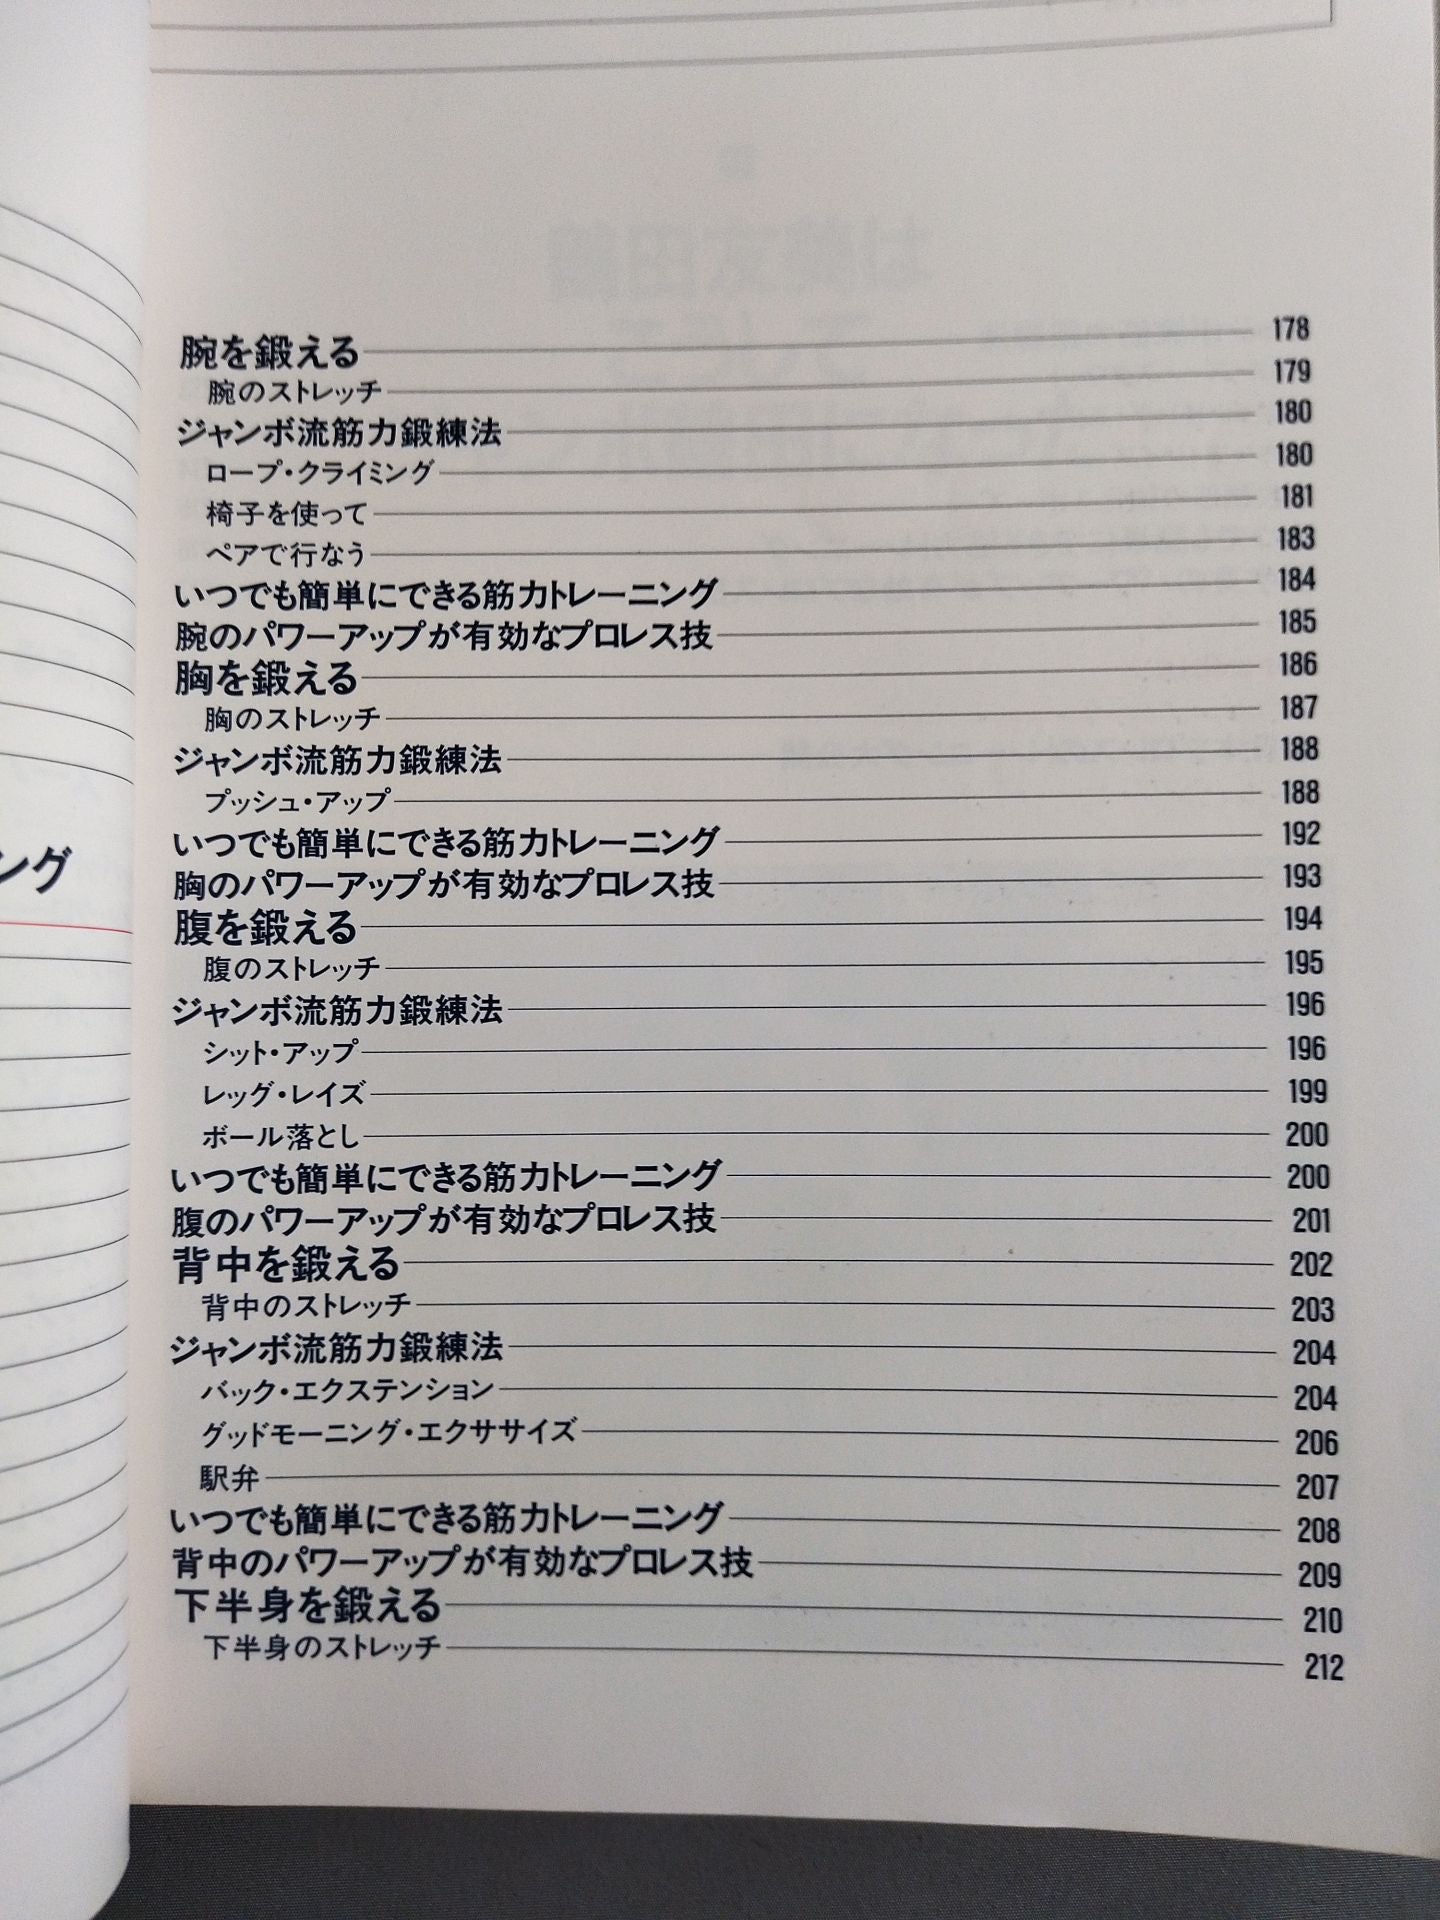 ング
腕を鍛える 178
腕のストレッチ 179
ジャンボ流筋力鍛練法 180
ロープ・クライミング 180
椅子を使って 181
ペアで行なう 183
いつでも簡単にできる筋力トレーニング 184
腕のパワーアップが有効なプロレス技 185
胸を鍛える 186
胸のストレッチ 187
ジャンボ流筋力鍛練法 188
プッシュ・アップ 188
いつでも簡単にできる筋力トレーニング 192
胸のパワーアップが有効なプロレス技 193
腹を鍛える 194
腹のストレッチ 195
ジャンボ流筋力鍛練法 196
シット・アップ 196
レッグ・レイズ 199
ボール落とし 200
いつでも簡単にできる筋力トレーニング 200
腹のパワーアップが有効なプロレス技 201
背中を鍛える 202
背中のストレッチ 203
ジャンボ流筋力鍛練法 204
バック・エクステンション 204
グッドモーニング・エクササイズ 206
駅弁 207
いつでも簡単にできる筋力トレーニング 208
背中のパワーアップが有効なプロレス技 209
下半身を鍛える 210
下半身のストレッチ 212